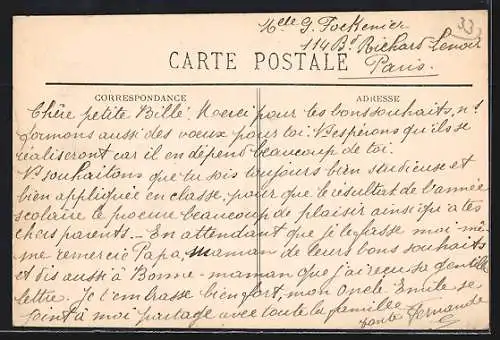 33
Melle G. Fockenier
114 Bd Richard Lenoir
Paris.
CARTE POSTALE
CORRESPONDANCE
ADRESSE
Chère petite Billé. Merci pour tes bons souhaits, ns
formons aussi des vœux pour toi. Ns espérons qu'ils se
réaliseront car il en dépend beaucoup de toi.
Ns souhaitons que tu sois toujours bien studieuse et
bien appliquée en classe, pour que le résultat de l'année
scolaire te procure beaucoup de plaisir ainsi qu'a tes
chers parents. _ En attendant que je le fasse moi-mê-
me remercie Papa, maman de leurs bons souhaits
et dis aussi à Bonne-maman que j'ai reçu sa gentille
lettre. Je t'embrasse bien fort, mon oncle Emile se
joint à moi partage avec toute la famille
tante Fernande